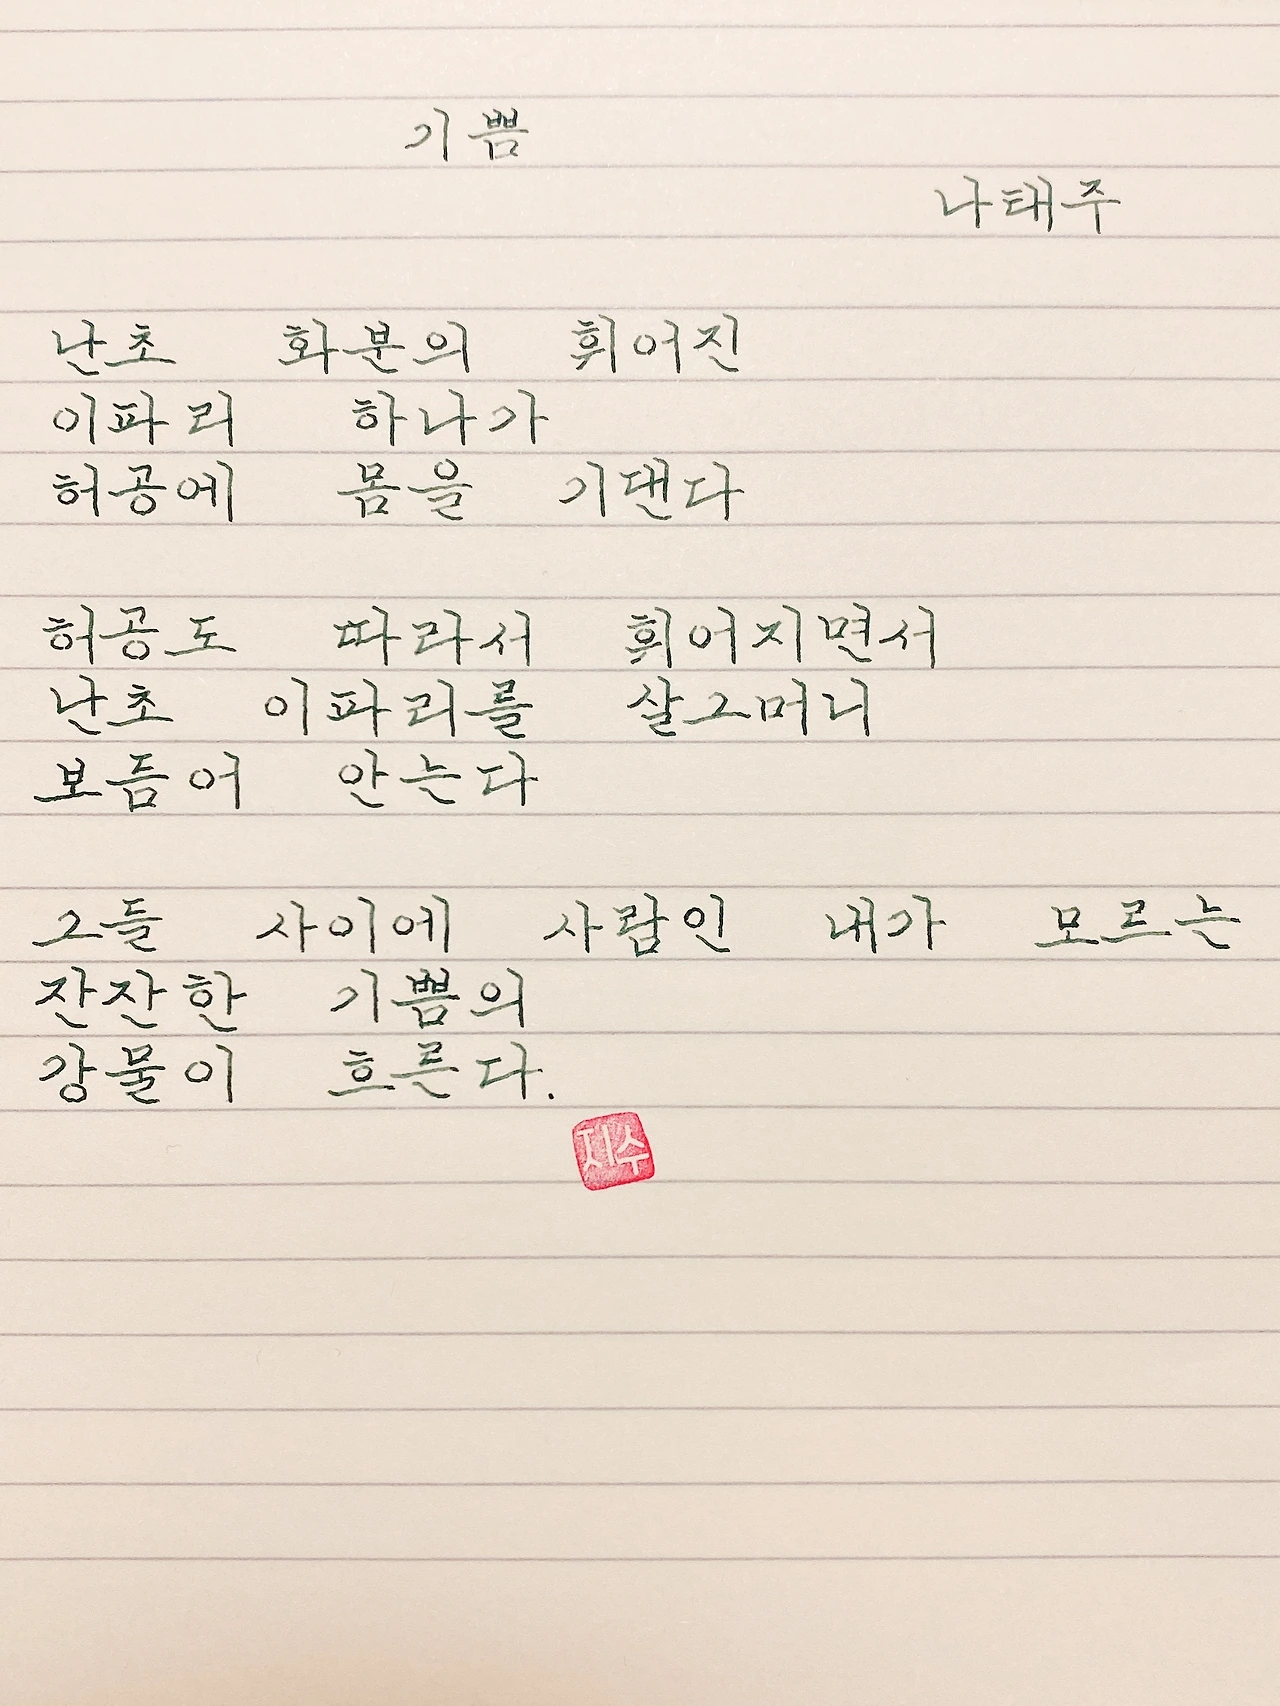 기쁨
나태주
난초 화분의 휘어진
이파리 하나가
허공에 몸을 기댄다
허공도 따라서 휘어지면서
난초 이파리를 살그머니
보듬어 안는다
그들 사이에 사람인 내가 모르는
잔잔한 기쁨의
강물이 흐른다.
지수